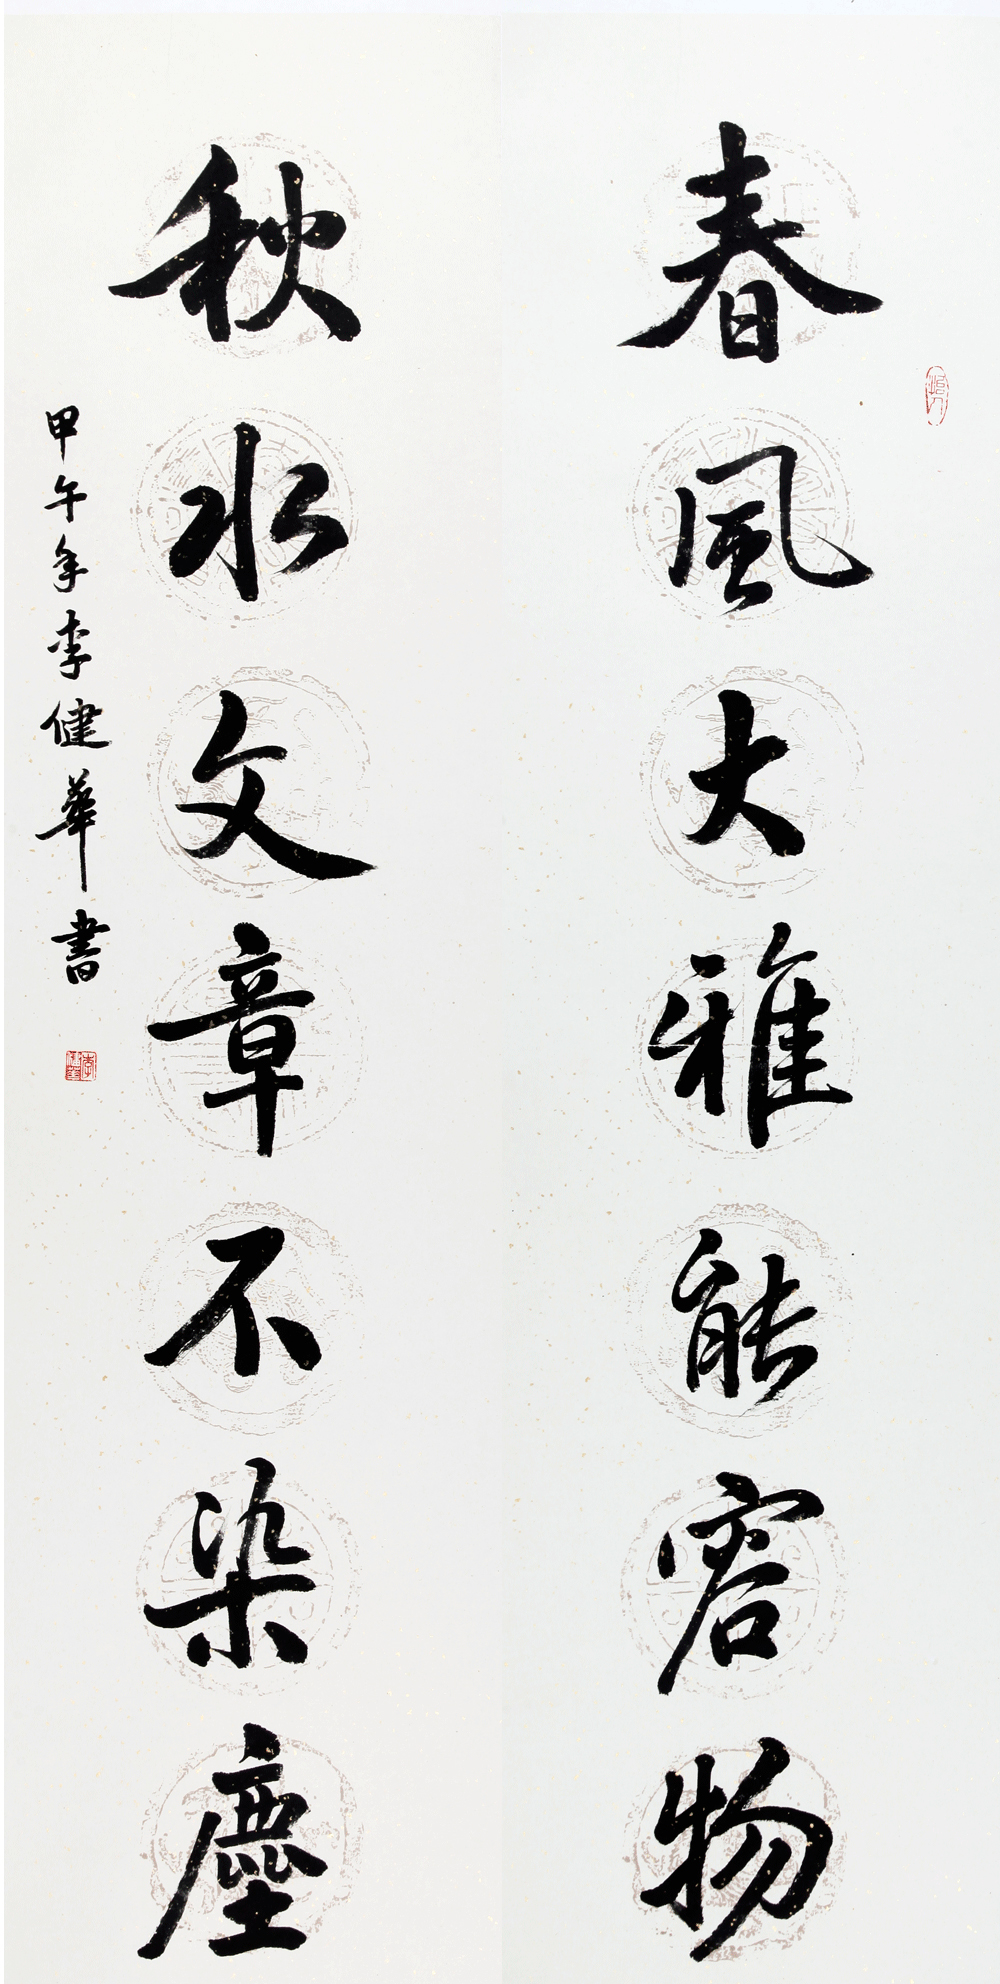 春風大雅能容物
秋水文章不染塵
甲午年李健華書